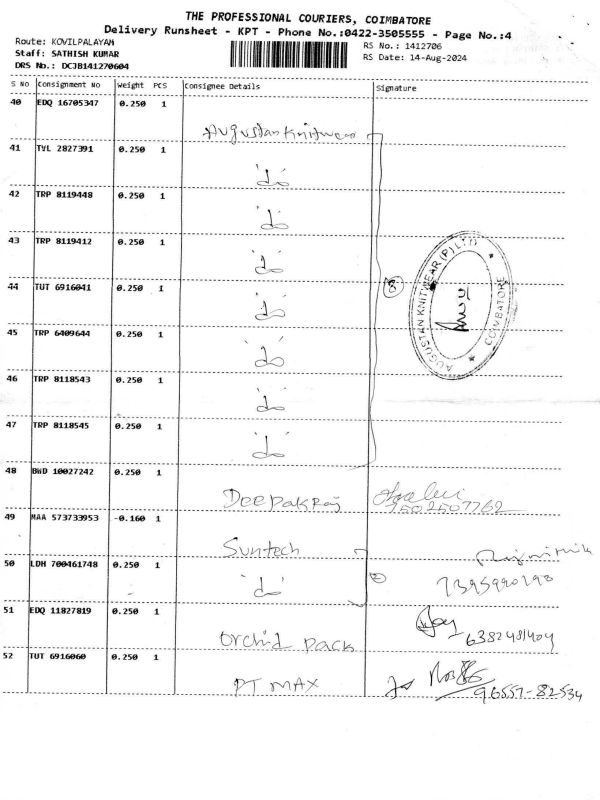 THE PROFESSIONAL COURIERS, COIMBATORE
Delivery Runsheet - KPT - Phone No.:0422-3505555 - Page No.:4
Route: KOVILPALAYAM
Staff: SATHISH KUMAR
DRS No.: DCJB141270604
RS No.: 1412706
RS Date: 14-Aug-2024
S No Consignment No Weight PCS Consignee Details Signature
40 EDQ 16705347 0.250 1 Augustan Knitwear
41 TVL 2827391 0.250 1 "do"
42 TRP 8119448 0.250 1 "do"
43 TRP 8119412 0.250 1 "do"
44 TUT 6916041 0.250 1 "do"
45 TRP 6409644 0.250 1 "do"
46 TRP 8118543 0.250 1 "do"
47 TRP 8118545 0.250 1 "do"
8
AUGUSTAN KNITWEAR (P) LTD
COIMBATORE
48 BWD 10027242 0.250 1 Deepakraj
7502507762
49 MAA 573733953 -0.160 1 Suntech
50 LDH 700461748 0.250 1 "do" 2
7395990198
51 EDQ 11827819 0.250 1 Orchid Pack
6382481404
52 TUT 6916060 0.250 1 PT MAX
96557-82534